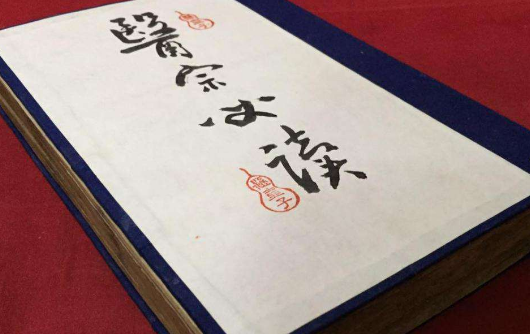 醫宗必讀